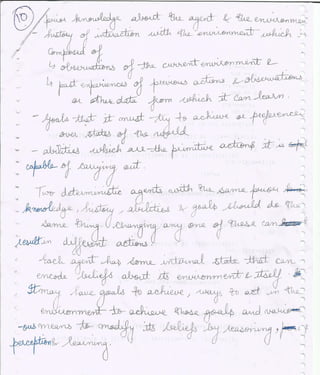 10
prior knowledge about the agent & the environmen
- history of interaction with the environment which is
composed of
↳ observations of the current environment &
↳ past experiences of previous actions & observations
or other data from which it can learn.
- Goals that it must try to achieve or preferences
over states of the world
- abilities which are the primitive actions it is
capable of carrying out.
Two deterministic agents with the same prior
knowledge, history, abilities & goals should do the
same thing. Changing any one of these can
result in different actions.
Each agent has some internal state that can
encode beliefs about its environment & itself.
It may have goals to achieve, ways to act in the
environment to achieve those goals and vario
-ous means to modify its beliefs by reasoning,
perception & learning.